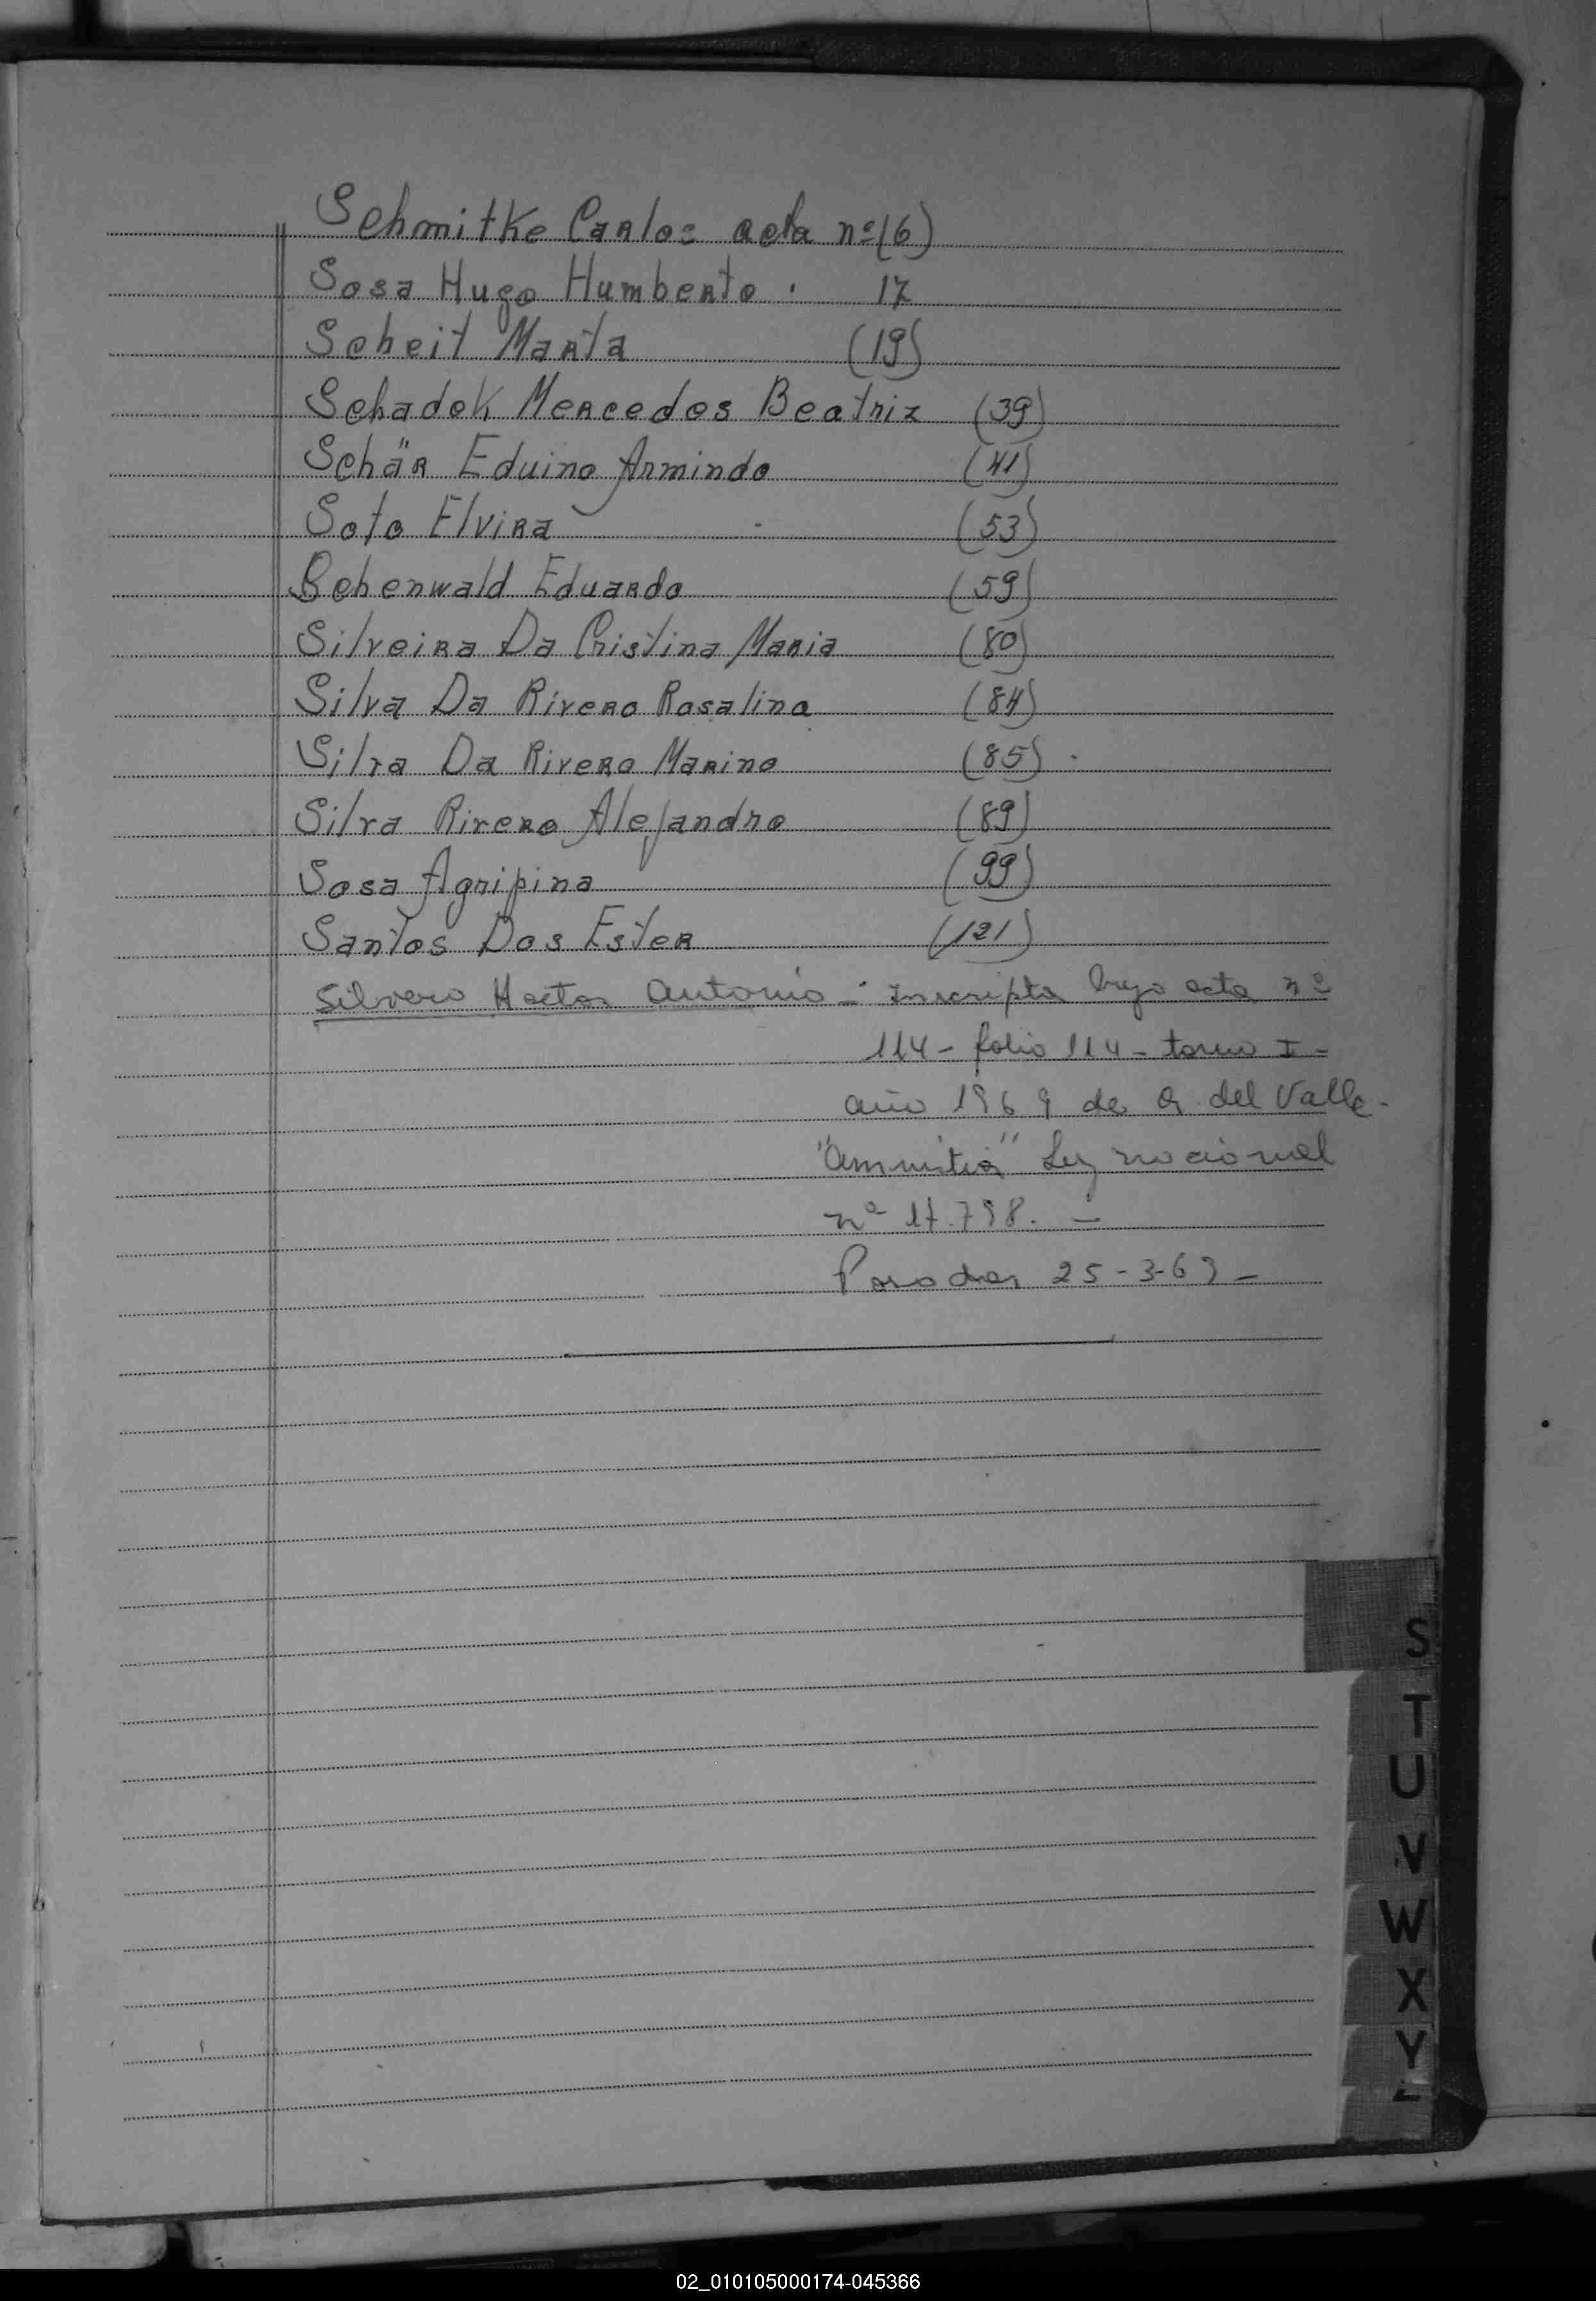 Schmitke Carlos acta nº (6)
Sosa Hugo Humberto . 17
Scheit Marta (19)
Schadek Mercedes Beatriz (39)
Schär Eduino Armindo (41)
Soto Elvira (53)
Schenwald Eduardo (59)
Silveira Da Cristina Maria (80)
Silva Da Rivero Rosalina (84)
Silva Da Rivero Marino (85)
Silva Rivero Alejandro (89)
Sosa Agripina (99)
Santos Dos Ester (121)
Silvero Hector Antonio - Inscripta bajo acta nº
114 - folio 114 - tomo I -
año 1969 de del Valle -
"Amnistia" Ley nacional
nº 17.798. -
Posadas 25-3-69 -
S
T
U
V
W
X
Y
Z
02_010105000174-045366